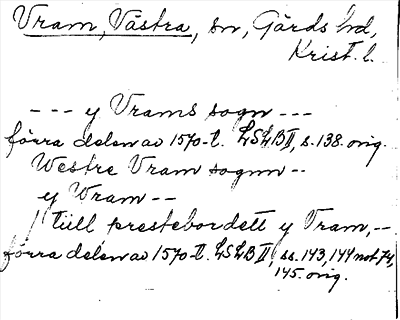 Vram, Västra, sn, Gärds hd,
Krist. l.
--- y Vrams sogn ---
förra delen av 1570-t. LSLB II, s. 138. orig.
Westre Vram sognn --
y Wram --
till prestebordett y Vram, --
förra delen av 1570-t. LSLB II, ss. 143, 144 not 74,
145. orig.